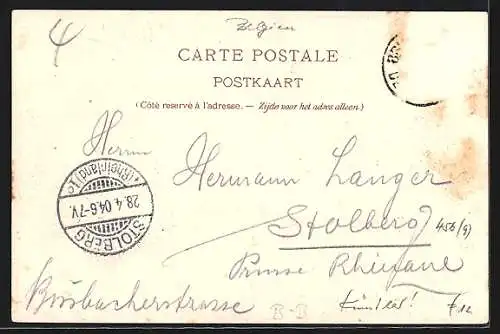 Belgien
CARTE POSTALE
POSTKAART
(Côté reservé à l'adresse. — Zijde voor het adres alleen.)
Herrn
Hermann Langer
Stolberg
456(9)
Prusse Rhénane
Busbacherstrasse
B-B
Künstler!
STOLBERG
(Rheinland) 1c
28.4.04.6-7V.